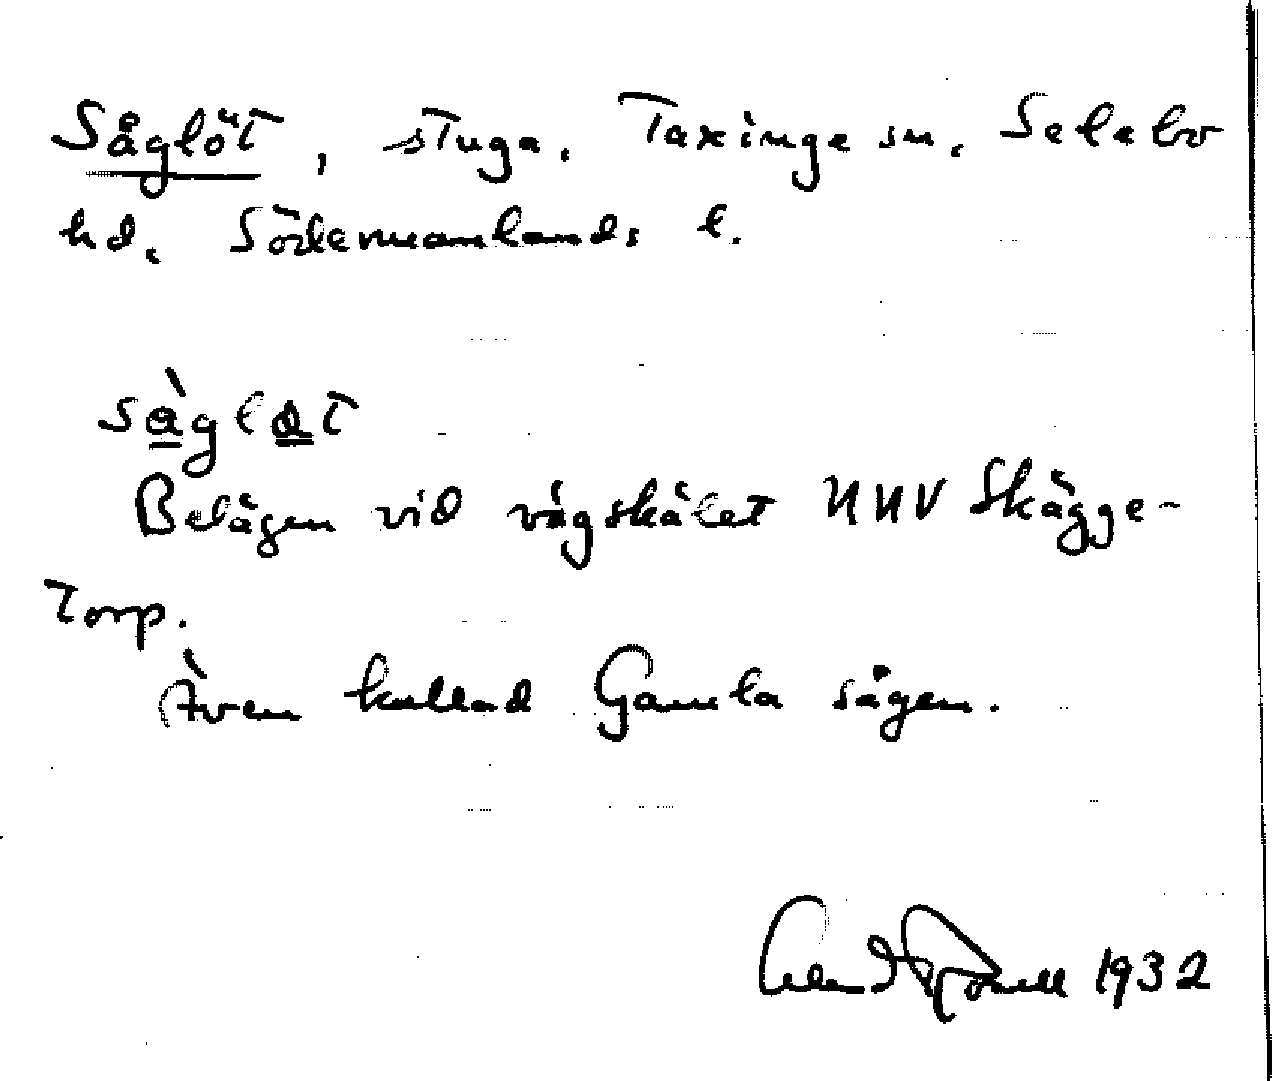 Såglöt, stuga. Taxinge sn. Selebo
hd. Södermanlands l.
sàgløt
Belägen vid vägskälet NNV Skägge-
torp.
Även kallad Gamla sågen.
1932